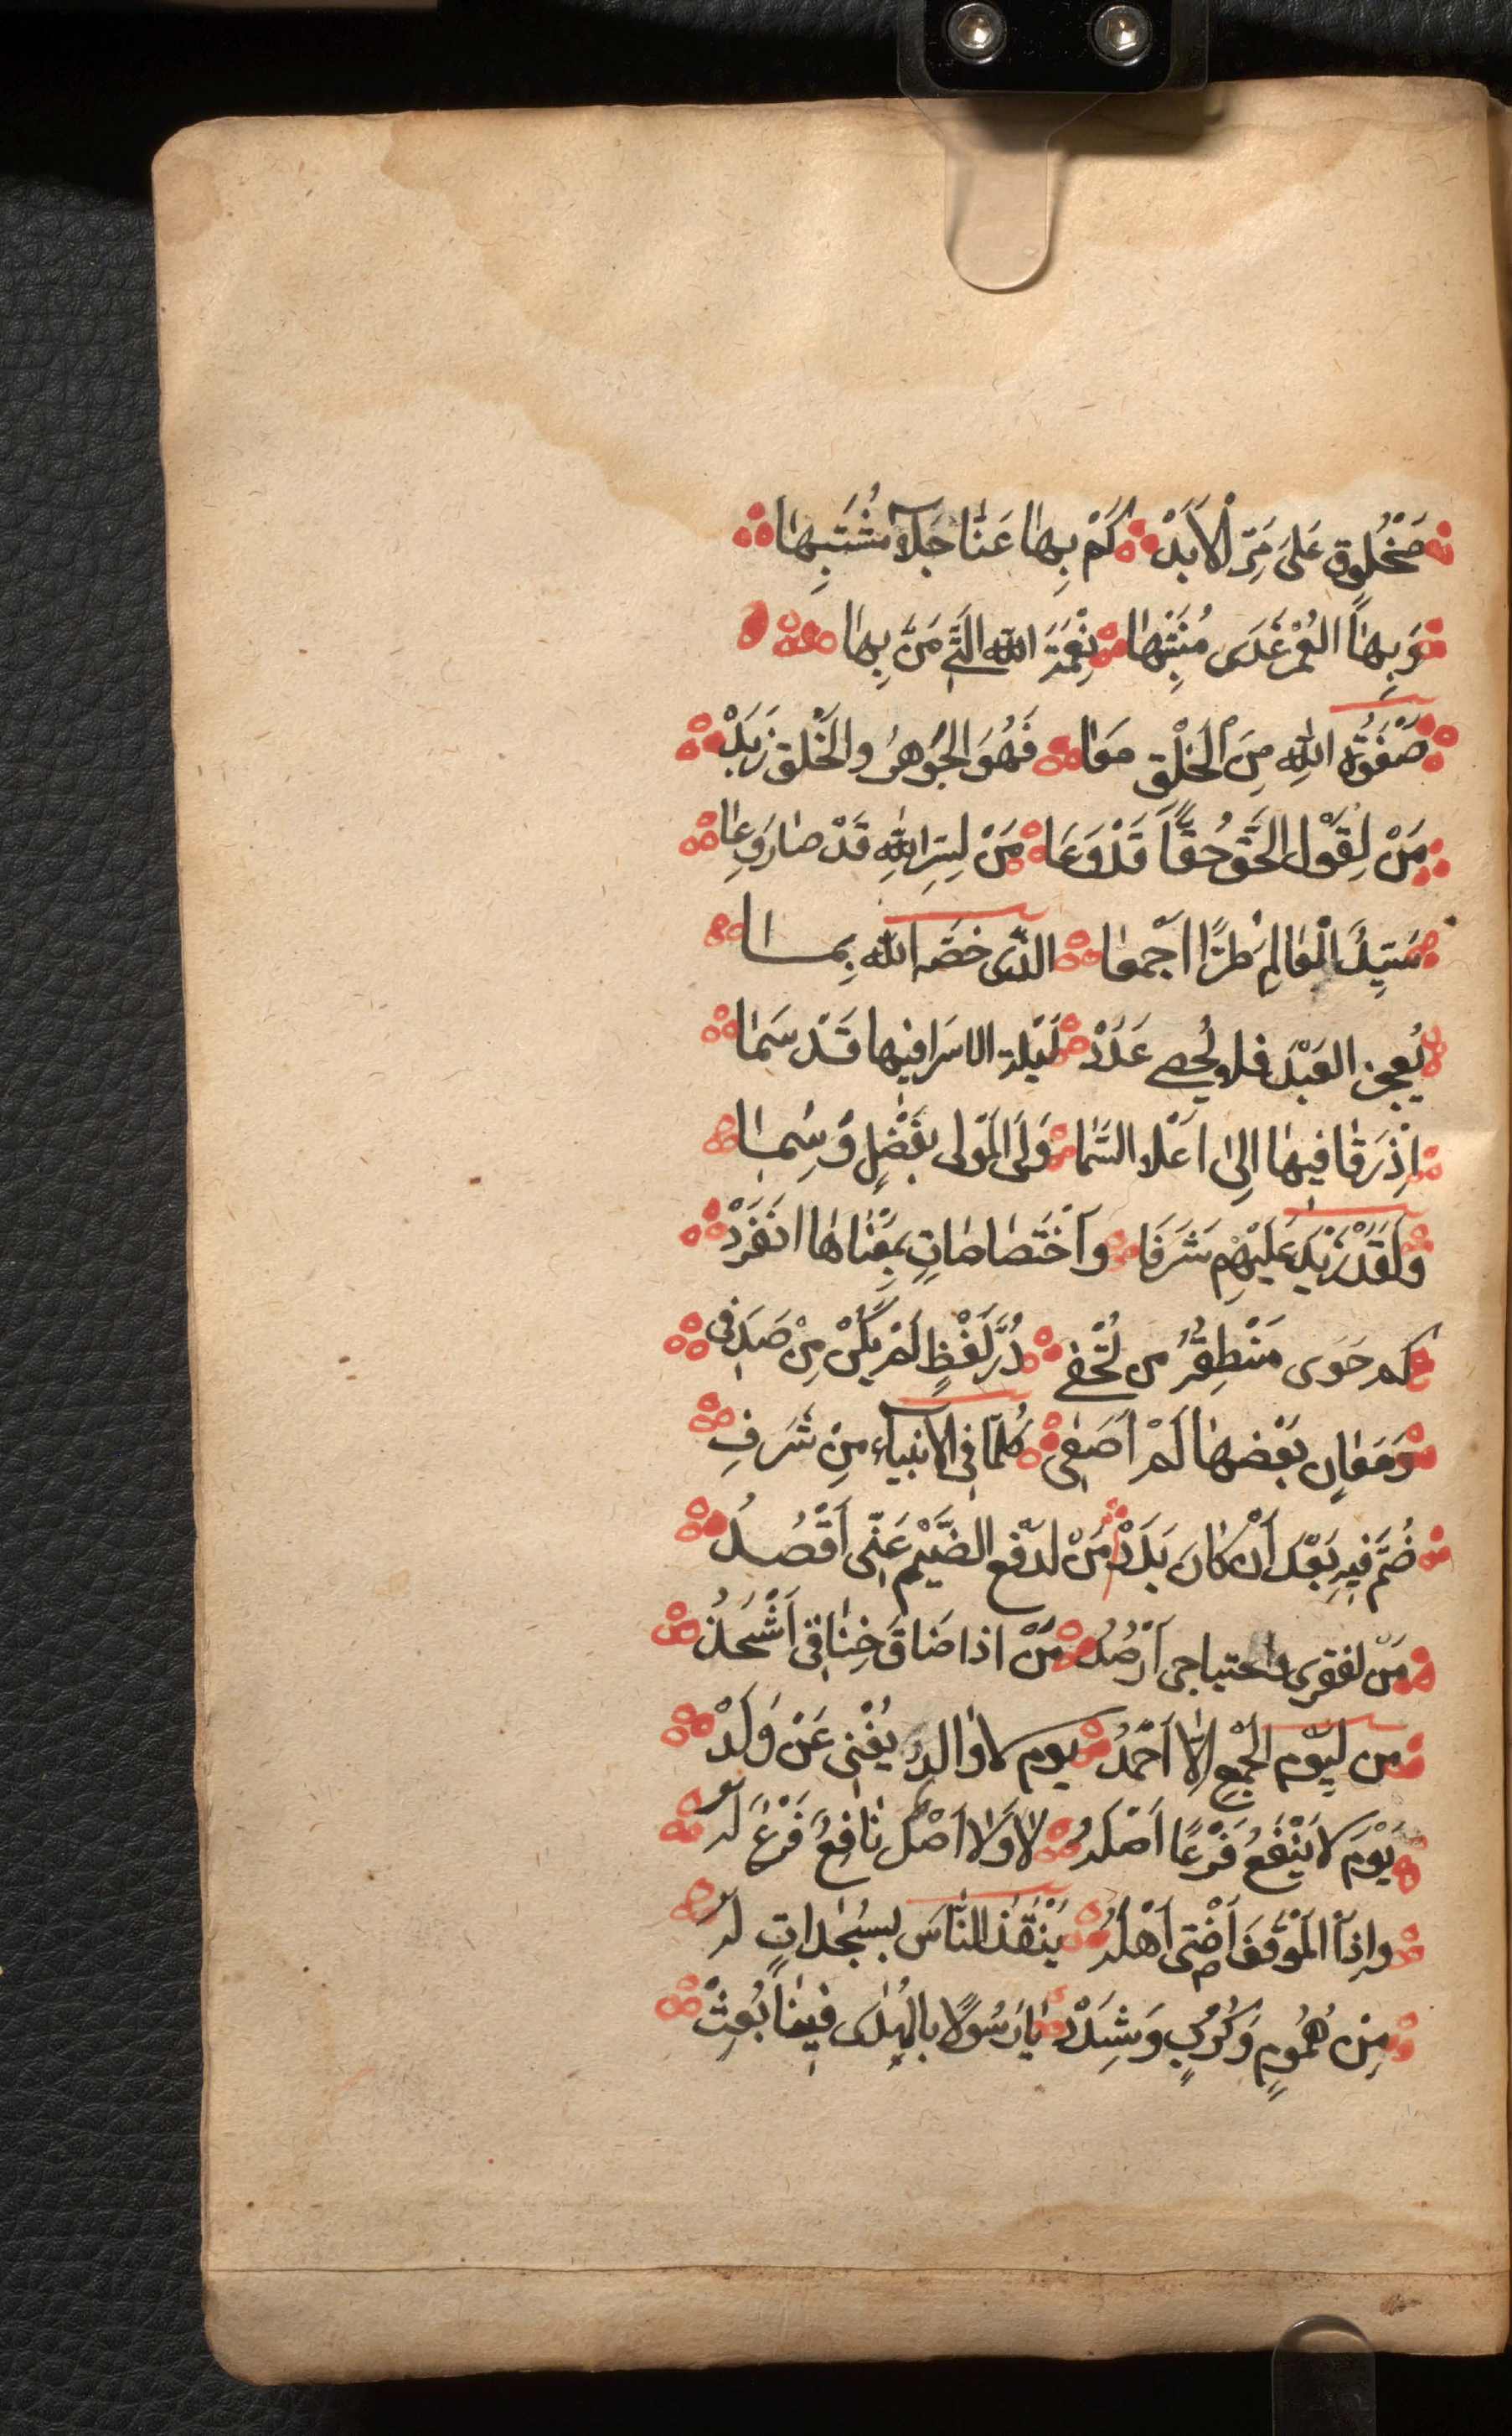 مَخْلُوقٍ عَلَى مَرِّ الْأَبَدْ كَمْ بِهَا عَنَّا جَلَا مُشْتَبِهَا
وَبِهَا الْعُمْرُ غَدَى مُنْتَبِهَا نِعْمَةَ اللّه الَّتِي مَنَّ بِهَا
صَفْوَةُ اللّٰهِ مِنَ الْخَلْقِ مَعَا فَهُوَ الْجَوْهَرُ وَالْخَلْقُ زَبَدْ
مَنْ لِقَوْلِ الْحَقِّ حُقًّا قَدْ وَعَا مَنْ لِسِرِّ اللّٰهِ قَدْ صَارَ وِعَا
سَيِّدُ الْعَالِمِ طُرًّا أَجْمَعَا الَّذِى خَصَّهُ اللّه بِمَا
يُعْجِزُ الْعَبْدَ فلا يُحْصِي عَدَدْ لَيْلَةَ الاسَرا فيها قَدْ سَمَا
إِذْ رَقَا فيهَا إِلَى أَعْلَا السَّمَا وَلَى الْمَوْلَى بِفَضْلٍ وُسِمَا
وَلَقَدْ زِيدَ عَلَيْهِمْ شَرَفَا وَاخْتِصَاصَاتٍ بِمَعْنَاهَا انْفَرَدْ
كم حَوَى مَنْطِقُهُ من تُحَفِ دُرَّ لَفْظٍ لَمْ يَكُنْ مِنْ صَدَفِ
وَمَعَانٍ بَعْضَهَا لَمْ أَصِفِ كُلَّمَا فِي الأَنْبِيَاءِ مِنْ شَرَفِ
ضُمَّ فِيهِ بَعْدَ أَنْ كَانَ بَدَدْ مَنْ لدَفْعِ الضَّيْمِ عَنِّى أَقْصُدُ
مَنْ لفقرى واحتياجى أَرْصُدُ مَنْ اذا ضَاقَ خِنَاقِى أَشْحَذُ
مَن لِيَوْمِ الْجَمْعِ إِلَّا أَحْمَدُ يوم لا وَالدٌ يُغْنِى عَنْ وَلَدْ
يَوْمَ لا يَنْفَعُ فَرْعًا أَصْلُهُ لَا وَلَا أَصْلٌ نَافِعٌ فَرْعٌ لَهُ
وَإِذَا الْمَوْقِفُ أَضْنَى أَهْلَهُ يُنْقِذُ النَّاسَ بِسَجْدَاتٍ لَهُ
مِنْ هُمُومٍ وَكُرُبٍ وَشِدَدْ يَا رَسُولًا بِالْهُدَى فِينَا بُعِثْ